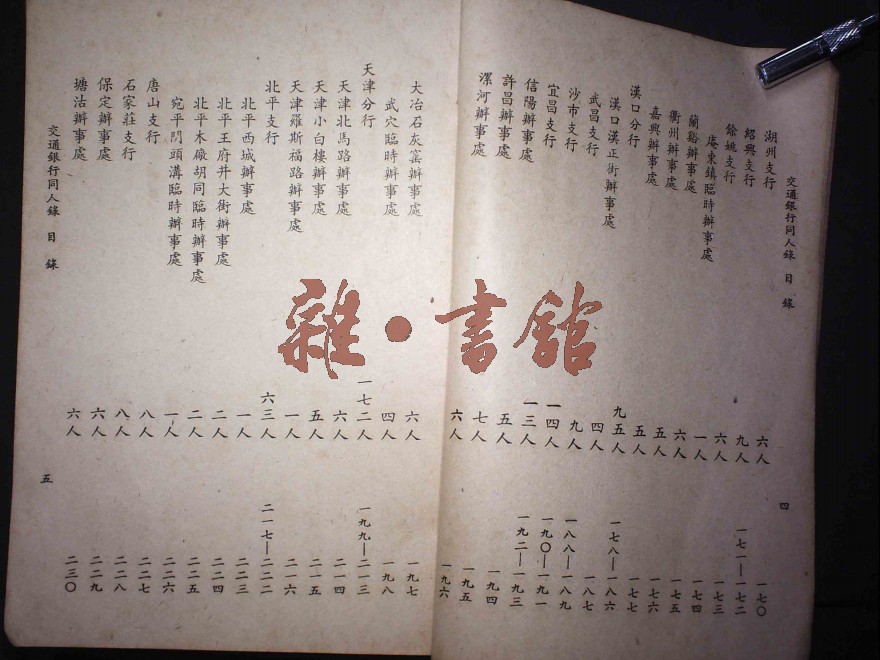 交通銀行同人錄 目錄 四
湖州支行 六人 一七〇
紹興支行 九人 一七一—一七二
餘姚支行 六人 一七三
庵東鎮臨時辦事處 一人 一七四
蘭谿辦事處 六人 一七五
衢州辦事處 五人 一七六
嘉興辦事處 五人 一七七
漢口分行 九五人 一七八—一八六
漢口漢正街辦事處 四人 一八七
武昌支行 九人 一八八—一八九
沙市支行 一四人 一九〇—一九一
宜昌支行 一三人 一九二—一九三
信陽辦事處 五人 一九四
許昌辦事處 七人 一九五
漯河辦事處 六人 一九六
大冶石灰窰辦事處 六人 一九七
武穴臨時辦事處 四人 一九八
天津分行 一七二人 一九九—二一三
天津北馬路辦事處 六人 二一四
天津小白樓辦事處 五人 二一五
天津羅斯福路辦事處 一人 二一六
北平支行 六三人 二一七—二二二
北平西城辦事處 一人 二二三
北平王府井大街辦事處 二人 二二四
北平木廠胡同臨時辦事處 二人 二二五
宛平門頭溝臨時辦事處 一人 二二六
唐山支行 八人 二二七
石家莊支行 八人 二二八
保定辦事處 六人 二二九
塘沽辦事處 六人 二三〇
交通銀行同人錄 目錄 五
雜·書館